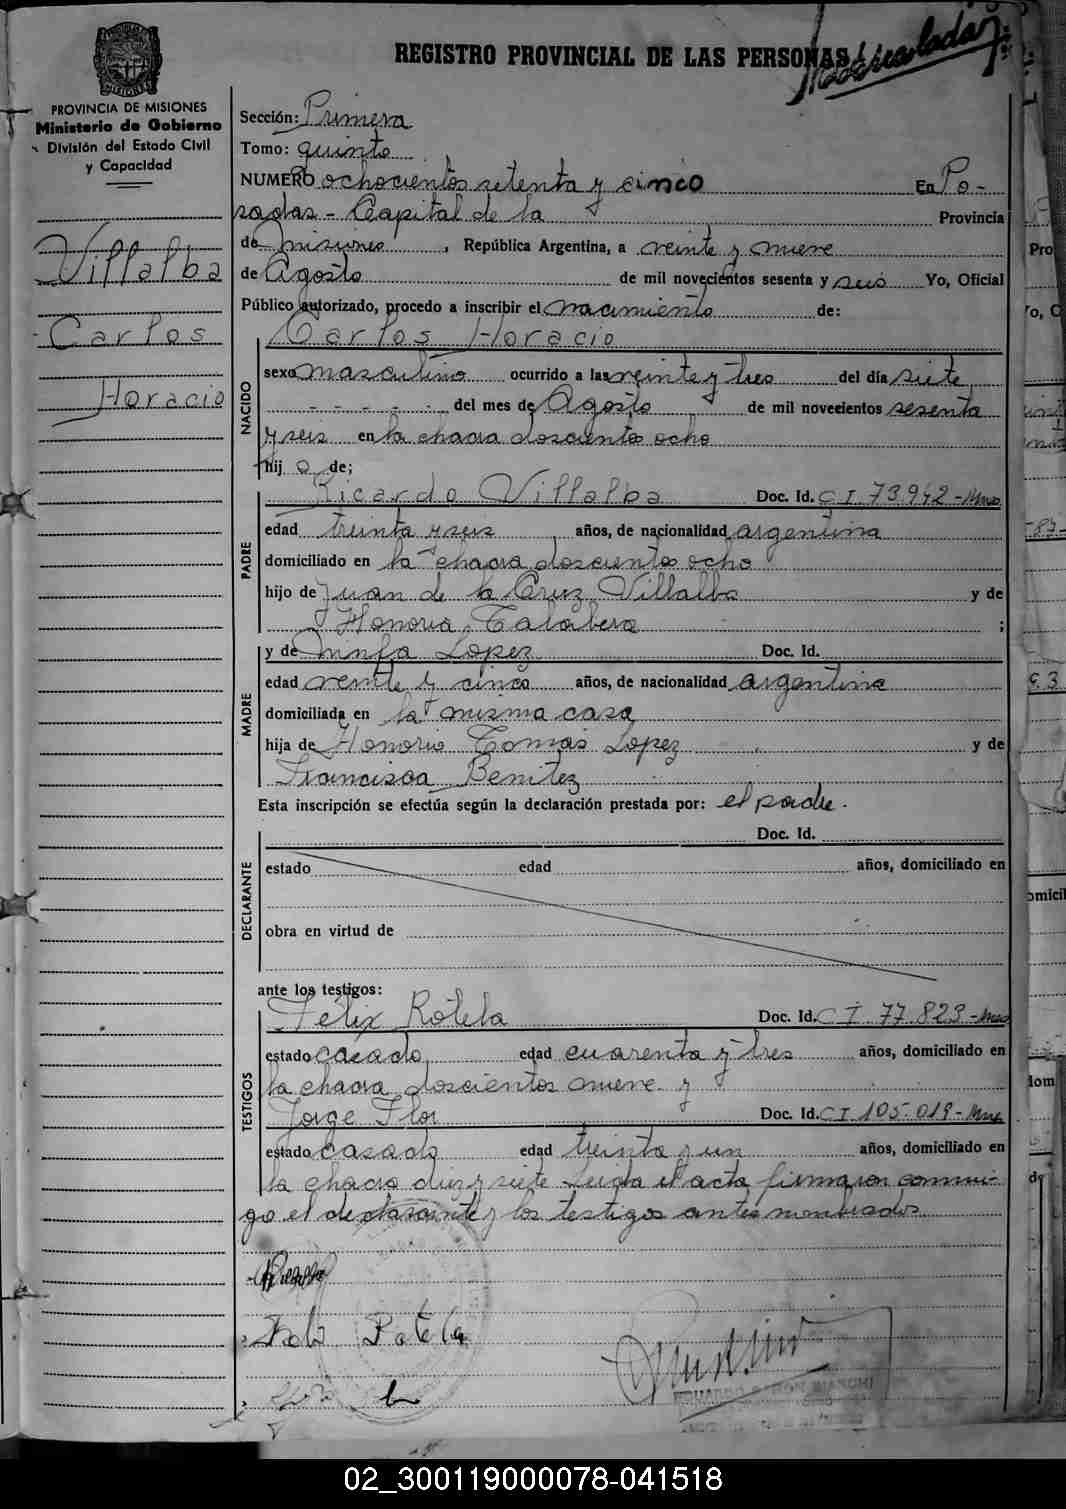 REGISTRO PROVINCIAL DE LAS PERSONAS
PROVINCIA DE MISIONES
Ministerio de Gobierno
División del Estado Civil
y Capacidad
Villalba
Carlos
Horacio
Sección: Primera
Tomo: quinto
NUMERO ochocientos setenta y cinco En Po-
sadas - Capital de la Provincia
de misiones, República Argentina, a veinte y nueve
de Agosto de mil novecientos sesenta y seis Yo, Oficial
Público autorizado, procedo a inscribir el nacimiento de:
Carlos Horacio
NACIDO
sexo masculino ocurrido a las veinte y tres del día siete
- - - - - del mes de Agosto de mil novecientos sesenta
y seis en la chacra doscientos ocho
hijo de;
PADRE
Ricardo Villalba Doc. Id. C I 73.942 - Mnes
edad treinta y seis años, de nacionalidad argentina
domiciliado en la chacra doscientos ocho
hijo de Juan de la Cruz Villalba y de
Honoria Talabera ;
MADRE
y de Ninfa Lopez Doc. Id.
edad veinte y cinco años, de nacionalidad argentina
domiciliada en la misma casa
hija de Honorio Tomás Lopez y de
Francisca Benitez
Esta inscripción se efectúa según la declaración prestada por: el padre.
DECLARANTE
Doc. Id.
estado edad años, domiciliado en
obra en virtud de
ante los testigos:
TESTIGOS
Félix Rotela Doc. Id. C I 77.823 - Mnes
estado casado edad cuarenta y tres años, domiciliado en
la chacra doscientos nueve y
Jorge Flor Doc. Id. C I 105.019 - Mnes
estado casado edad treinta y un años, domiciliado en
la chacra diez y siete Leida el acta firmaron conmi-
go el declarante y los testigos antes nombrados
Rotela
02_300119000078-041518